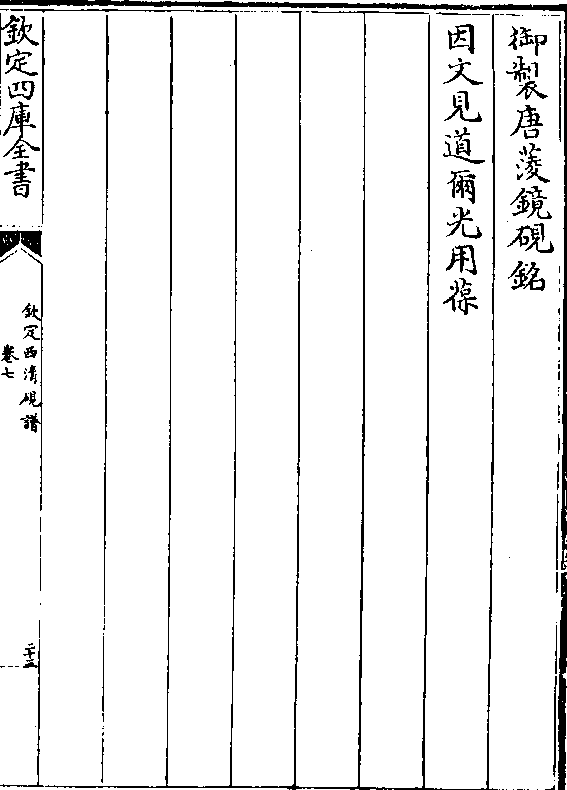 御製唐蔆鏡硯銘
因文見道爾光用葆
欽定四庫全書
欽定西清硯譜
卷七
二十三